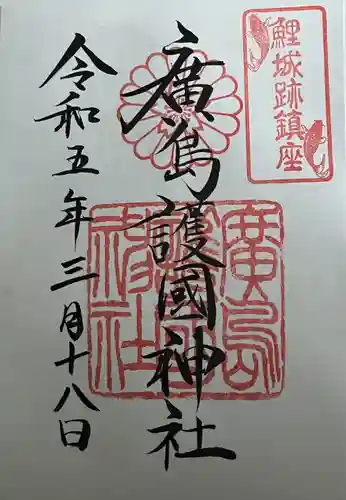 鯉城跡鎮座
廣島護國神社
令和五年三月十八日
廣島護國神社